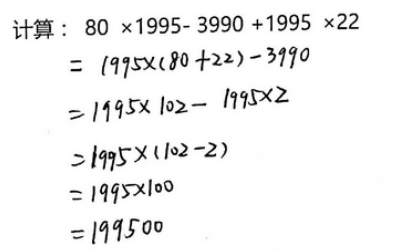 计算： 80 ×1995- 3990 +1995 ×22
= 1995×(80+22)-3990
=1995×102- 1995×2
=1995×(102-2)
=1995×100
=199500